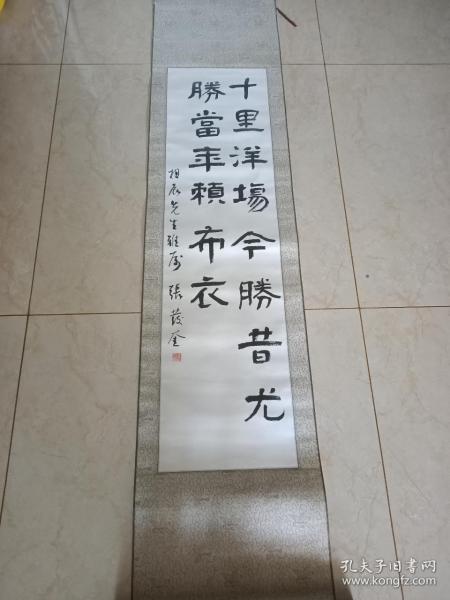 十里洋場今勝昔尤
勝當年賴布衣
相辰先生雅屬 張發奎
孔夫子旧书网
www.kongfz.com